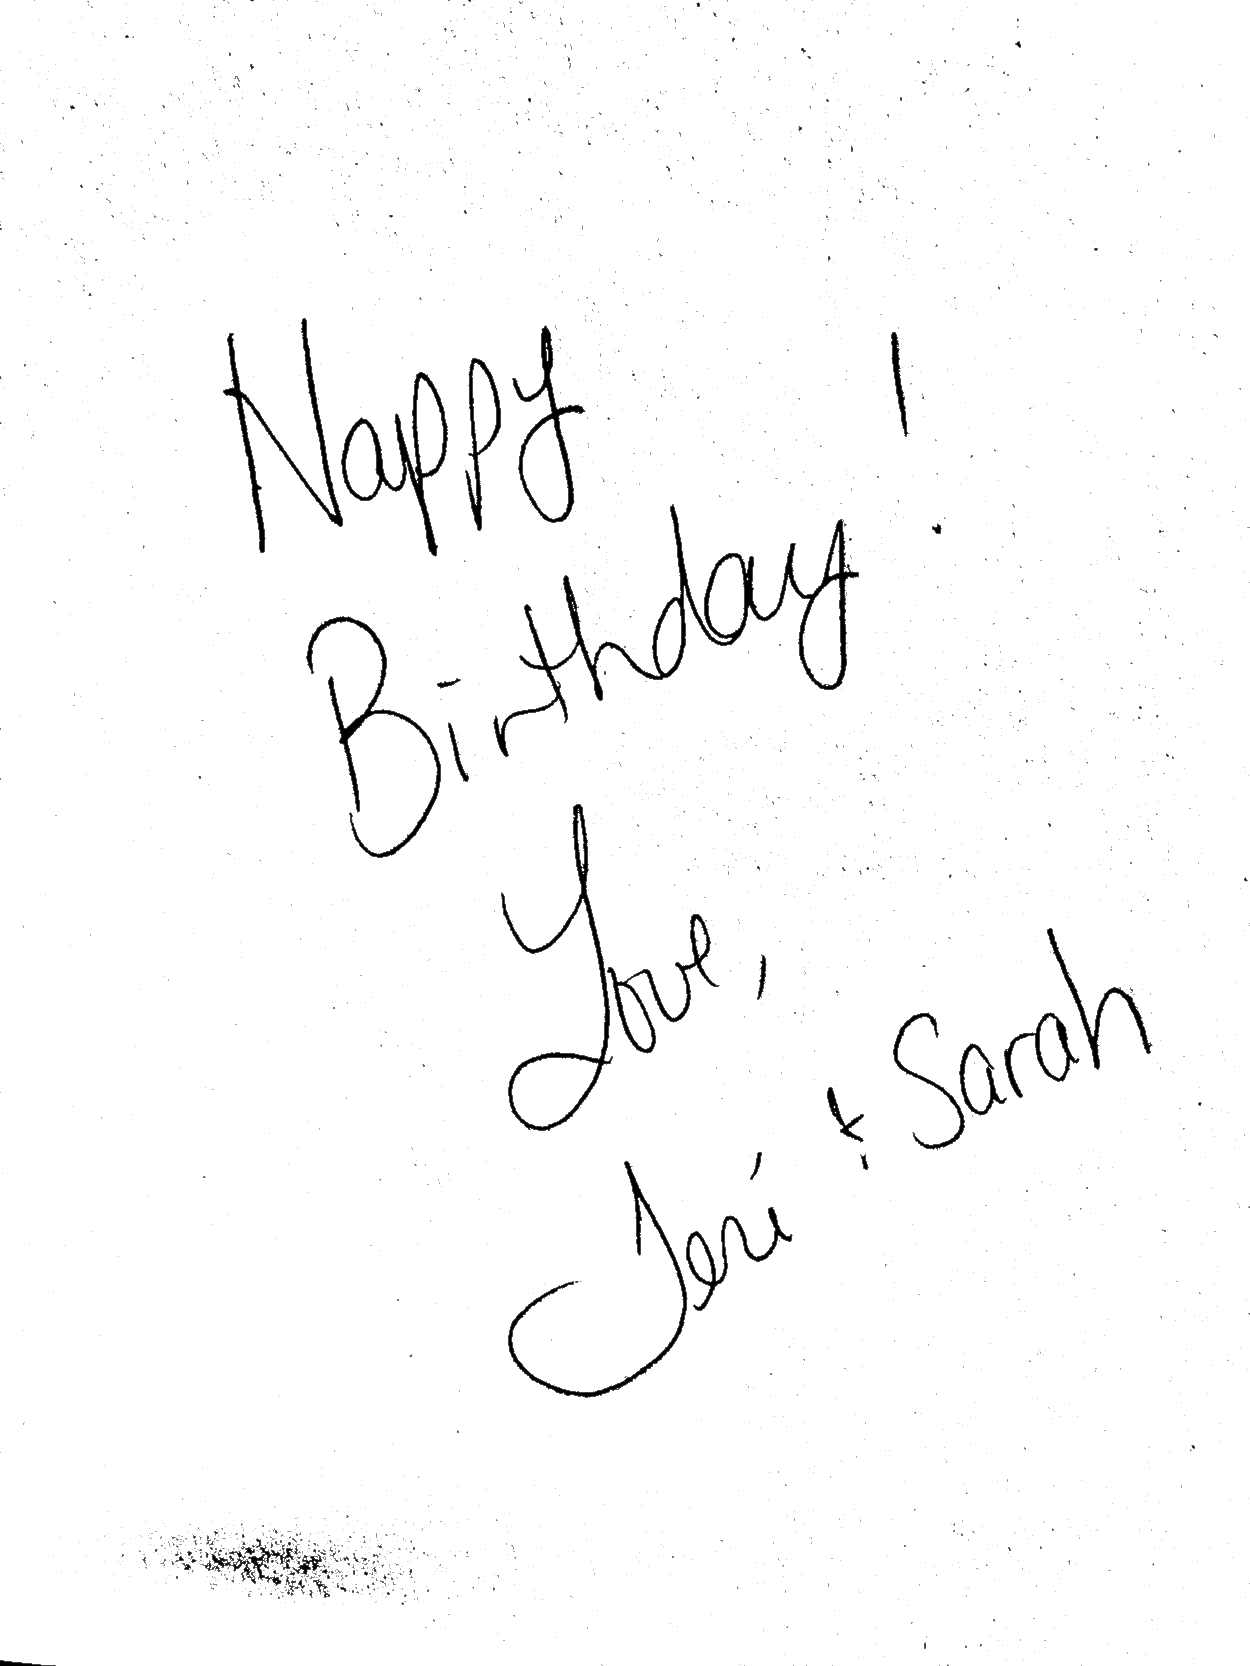 Happy
Birthday!
Love,
Jeri & Sarah